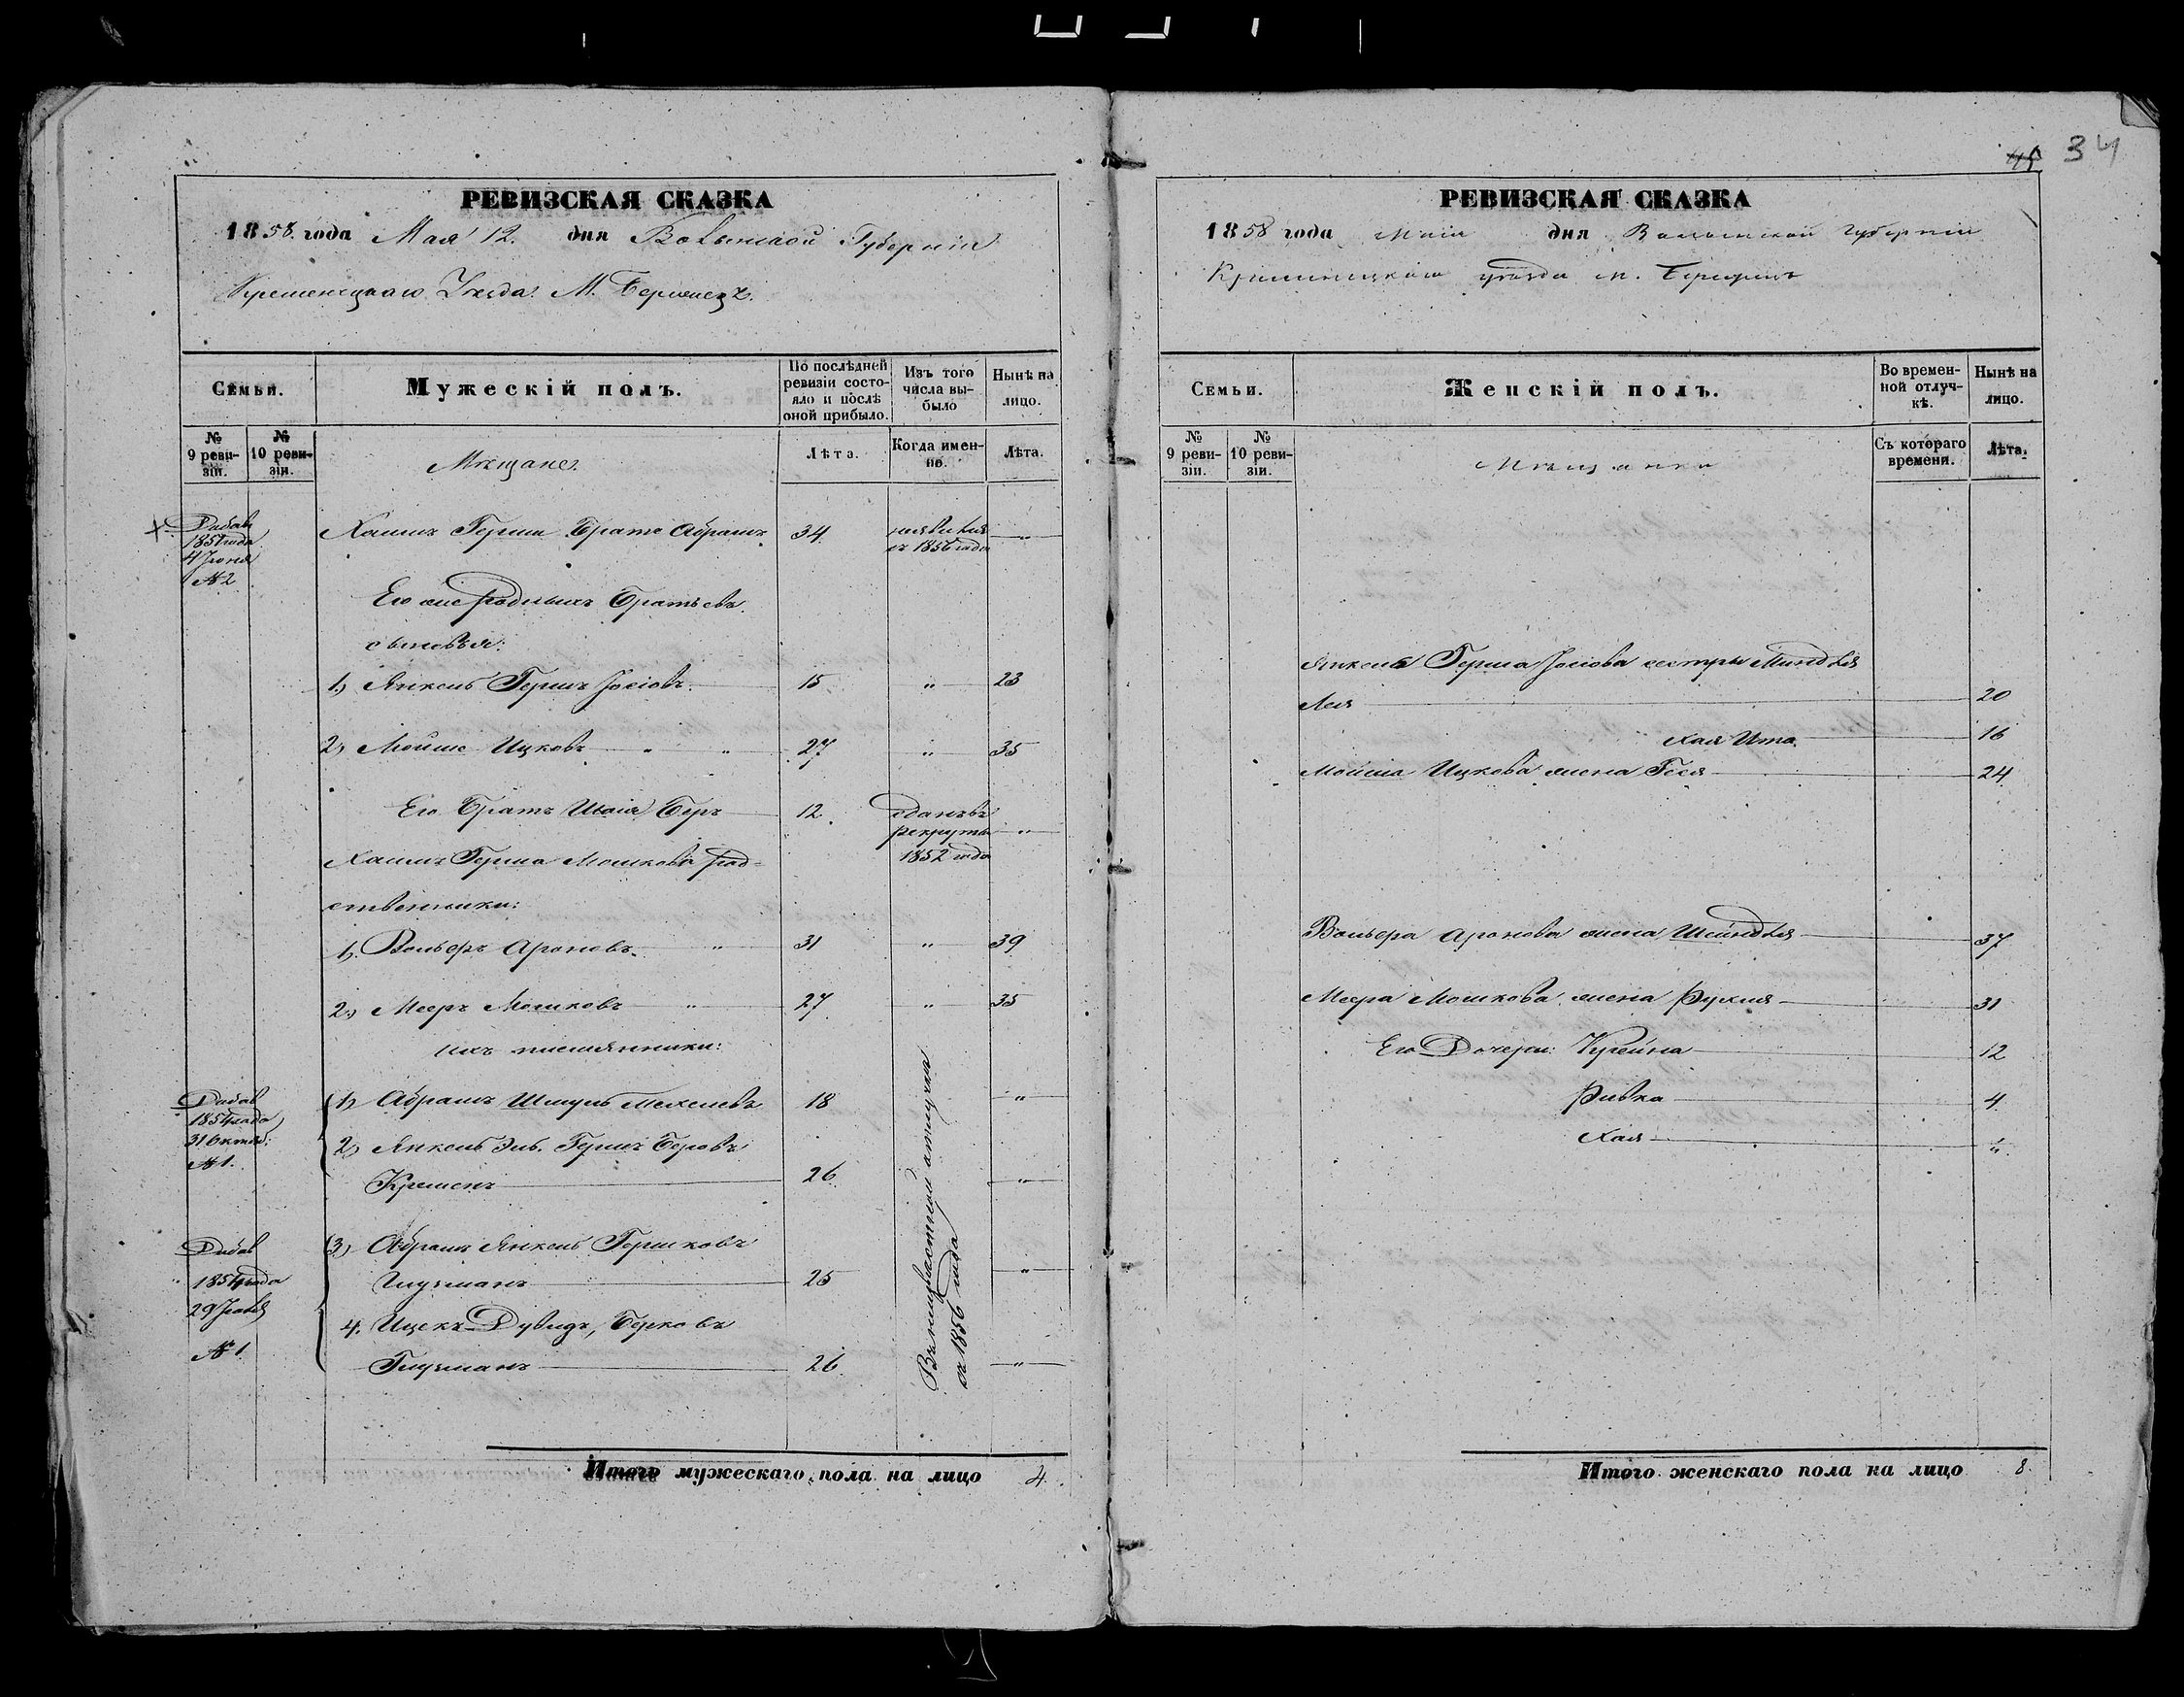 34
РЕВИЗСКАЯ СКАЗКА
1858 года Мая 12. дня Волынской Губернии
Кременецкаго Уезда. М. Бережецъ.
Семьи.
Мужескій полъ.
По послѣдней ревизіи состояло и послѣ оной прибыло.
Изъ того числа выбыло
Нынѣ на лицо.
№ 9 ревизіи.
№ 10 ревизіи.
Мѣщане.
Лѣта.
Когда именно.
Лѣта.
Добав 1851 года 4 Іюня № 2
Хаимъ Герша Братъ Абрамъ 34 въ 1856 году "
Его же родныхъ Братьевъ
сыновья:
1) Янкель Гершъ Іосіовъ 15 " 23
2) Мойше Ицковъ " " 27 " 35
Его Братъ Шаія Беръ 12 Сданъ въ рекруты 1852 года "
Хаимъ Герша Мошкова род-
ственники:
1) Вольфъ Ароновъ " 31 " 39
2) Мееръ Мошковъ " 27 " 35
ихъ племянники:
Добав 1854 года 31 Октяб: № 1.
1) Абрамъ Шмуль 18 "
2) Янкель Гершъ Беровъ
Кременъ 26 "
Добав 1854 года 29 № 1
3) Абрамъ Янкель Гершковъ
Глузманъ 25 "
4. Ицекъ Дувидъ, Берковъ
Глузманъ 26 "
отлучки съ 1856 года
Итого мужескаго пола на лицо 4.
РЕВИЗСКАЯ СКАЗКА
1858 года Маія дня Волынской Губерніи
Кременецкаго уѣзда м.
Семьи.
Женскій полъ.
Во временной отлучкѣ.
Нынѣ на лицо.
№ 9 ревизіи.
№ 10 ревизіи.
Мѣщанки
Съ котораго времени.
Лѣта.
Янкеля Герша Іосіова сестры Миндля
Лея 20
Хая Ита 16
Мойша Ицкова жена Геся 24
Вольфа Аронова жена Шейндля 37
Меера Мошкова жена Рухля 31
Его Дочери: Крейна 12
Ривка 4
Хая
Итого женскаго пола на лицо 8.